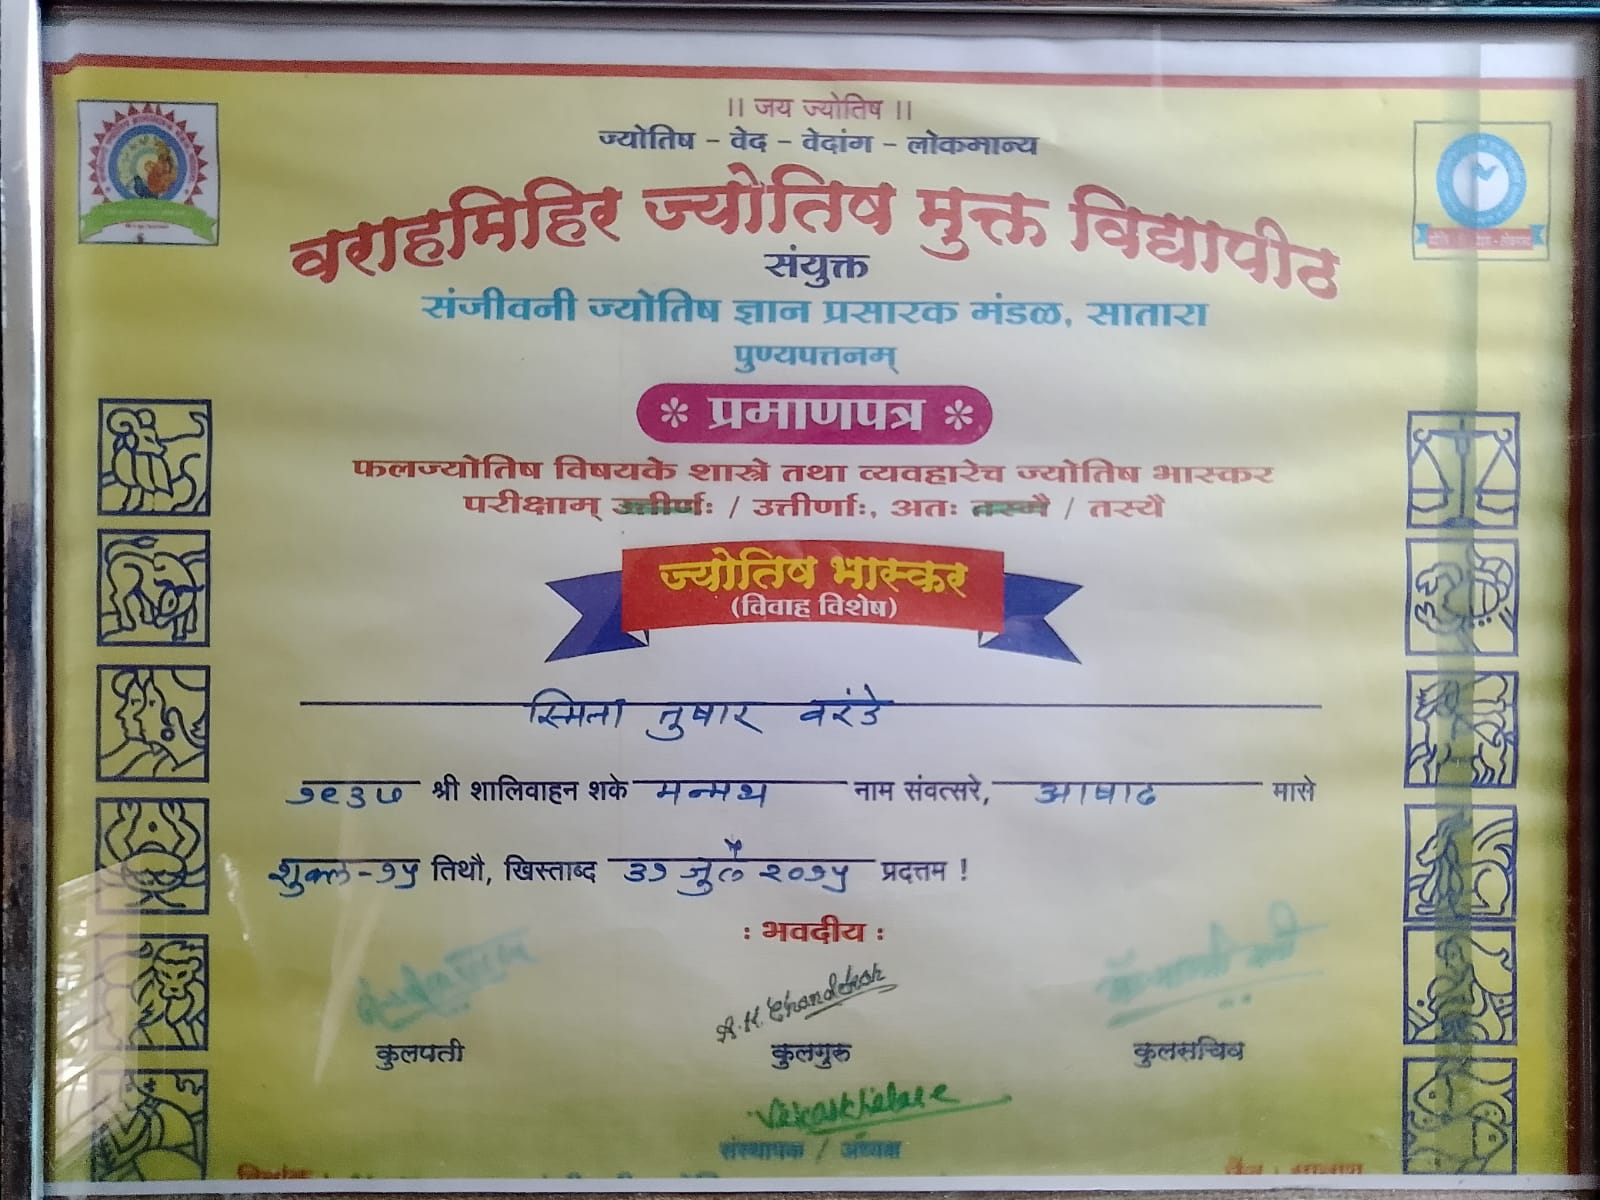 ।। जय ज्योतिष ।।
ज्योतिष - वेद - वेदांग - लोकमान्य
वराहमिहिर ज्योतिष मुक्त विद्यापीठ
संयुक्त
संजीवनी ज्योतिष ज्ञान प्रसारक मंडळ, सातारा
पुण्यपत्तनम्
* प्रमाणपत्र *
फलज्योतिष विषयके शास्त्रे तथा व्यवहारेच ज्योतिष भास्कर
परीक्षाम् उत्तीर्णः / उत्तीर्णाः, अतः तस्मै / तस्यै
ज्योतिष भास्कर
(विवाह विशेष)
स्मिता तुषार वरंडे
१९३७ श्री शालिवाहन शके मन्मथ नाम संवत्सरे, आषाढ मासे
शुक्ल-१५ तिथौ, खिस्ताब्द ३१ जुलै २०१५ प्रदत्तम !
: भवदीय :
A.K. Chandekar
कुलपती कुलगुरु कुलसचिव
संस्थापक / अध्यक्ष